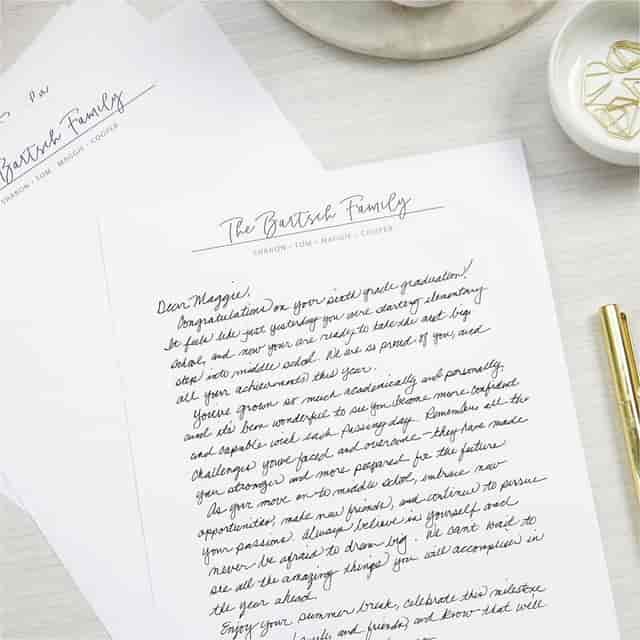 Bartsch Family
SHARON • TOM • MAGGIE • COOPER
The Bartsch Family
SHARON • TOM • MAGGIE • COOPER
Dear Maggie,
Congratulations on your sixth grade graduation!
It feels like just yesterday you were starting elementary
school, and now your are ready to take the next big
step into middle school. We are so proud of you, and
all your achievements this year.
You've grown so much academically and personally,
and its been wonderful to see you become more confident
and capable with each passing day. Remember all the
challenges you've faced and overcome - they have made
you stronger and more prepared for the future
As your move on to middle school, embrace new
opportunities, make new friends, and continue to pursue
your passions. Always believe in yourself and
never be afraid to dream big. We can't wait to
see all the amazing things you will accomplish in
the year ahead.
Enjoy your summer break, celebrate this milestone
and friends, and know that we'll